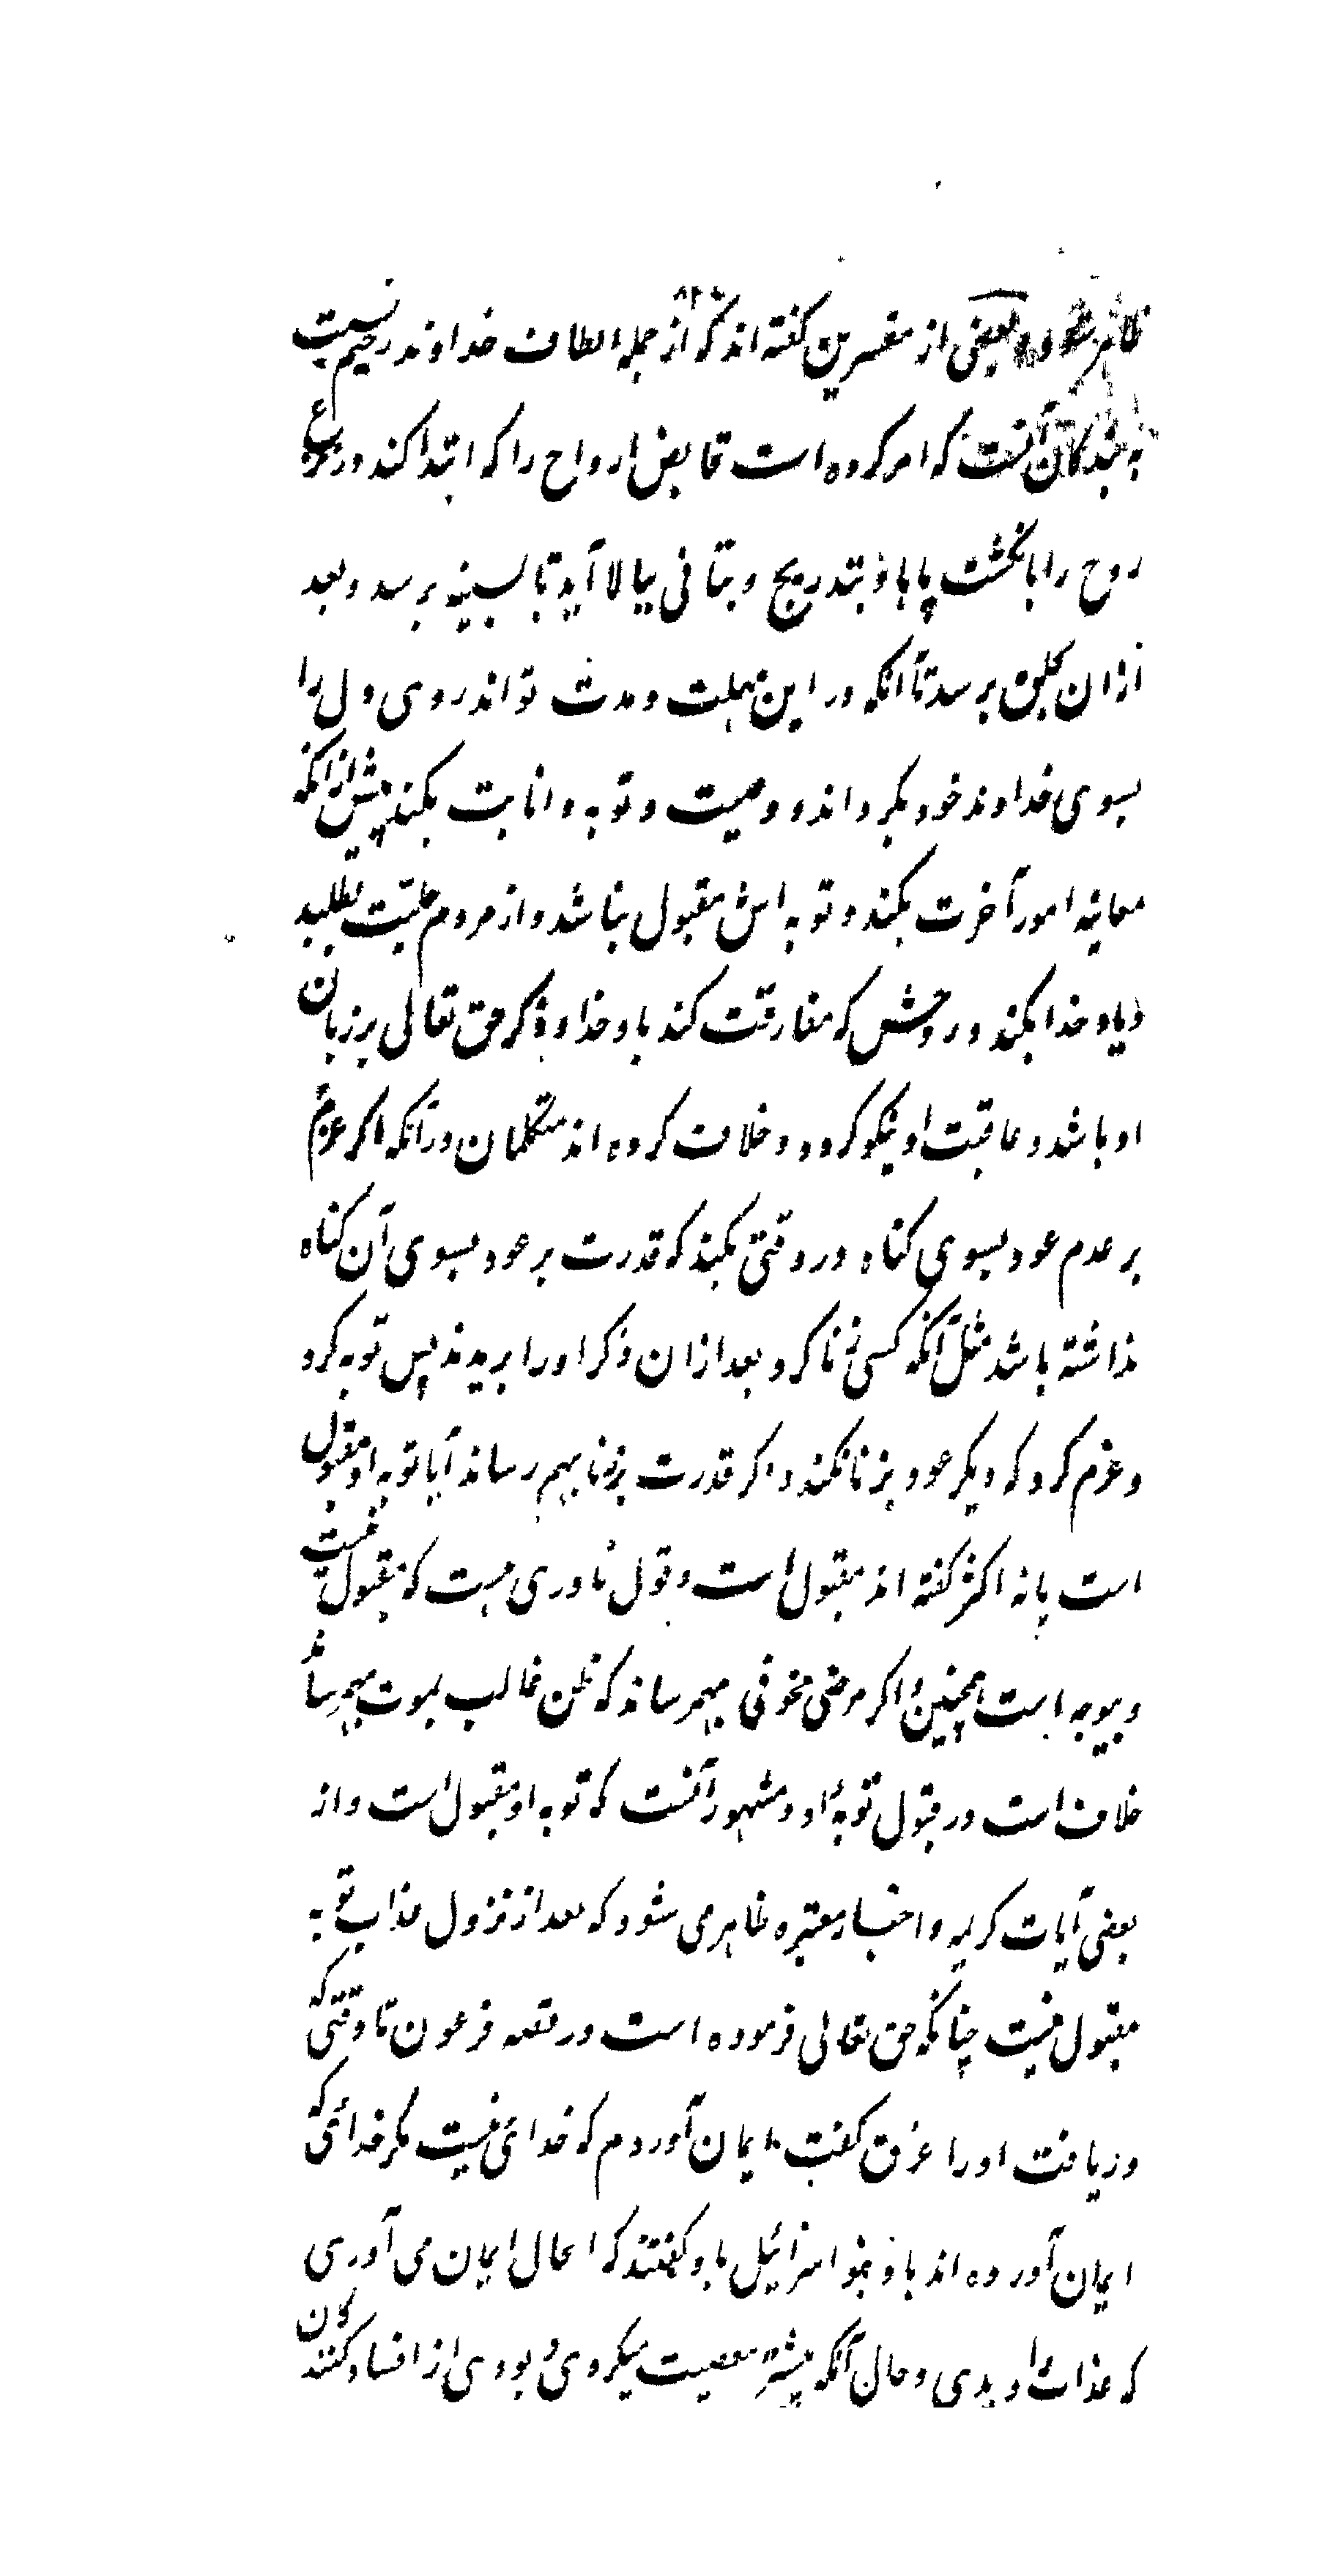 ظاهر شود و بعضی از مفسرین گفته اند که از جمله الطاف خداوند رحیم نسبت
به بندگان آنست که امر کرده است قابض ارواح را که ابتدا کند در نزع
روح را بانگشت پاها و بتدریج و بتأنی ببالا آید تا بسینه برسد و بعد
ازان بحلق برسد تا آنکه در این مهلت و مدت تواند روی دل را
بسوی خداوند خود بگرداند و وصیت و توبه و انابت بکند پیش ازانکه
معاینه امور آخرت بکند و توبه اش مقبول نباشد و از مردم حلیت بطلبد
و یاد خدا بکند و روحش که مفارقت کند با یاد خدا و ذکر حق تعالی بر زبان
او باشد و عاقبت او نیکو گردد و خلاف کرده اند متکلمان در آنکه اگر عزم
بر عدم عود بسوی گناه در وقتی بکند که قدرت بر عود بسوی آن گناه
نداشته باشد مثل آنکه کسی زنا کرد بعد ازان ذکر او را بریدند پس توبه کرد
و عزم کرد که دیگر عود بزنا نکند و اگر قدرت بزنا بهم رساند آیا توبه او مقبول
است یا نه اکثر گفته اند مقبول است و قول نادری هست که مقبول نیست
و بیوجه است همچنین اگر مرض مخوفی بهمرساند که ظن غالب بموت بهم رساند
خلاف است در قبول توبهٔ او و مشهور آنست که توبه او مقبول است و از
بعضی آیات کریمه و اخبار معتبره ظاهر می شود که بعد از نزول عذاب توبه
مقبول نیست چنانکه حق تعالی فرموده است در قصه فرعون تا وقتی که
دریافت او را غرق گفت ایمان آوردم که خدائی نیست مگر خدائی که
ایمان آورده اند باو بنو اسرائیل باو گفتند که الحال ایمان می آوری
که عذاب را دیدی و حال آنکه پیشتر معصیت میکردی و بودی از افساد کنندگان